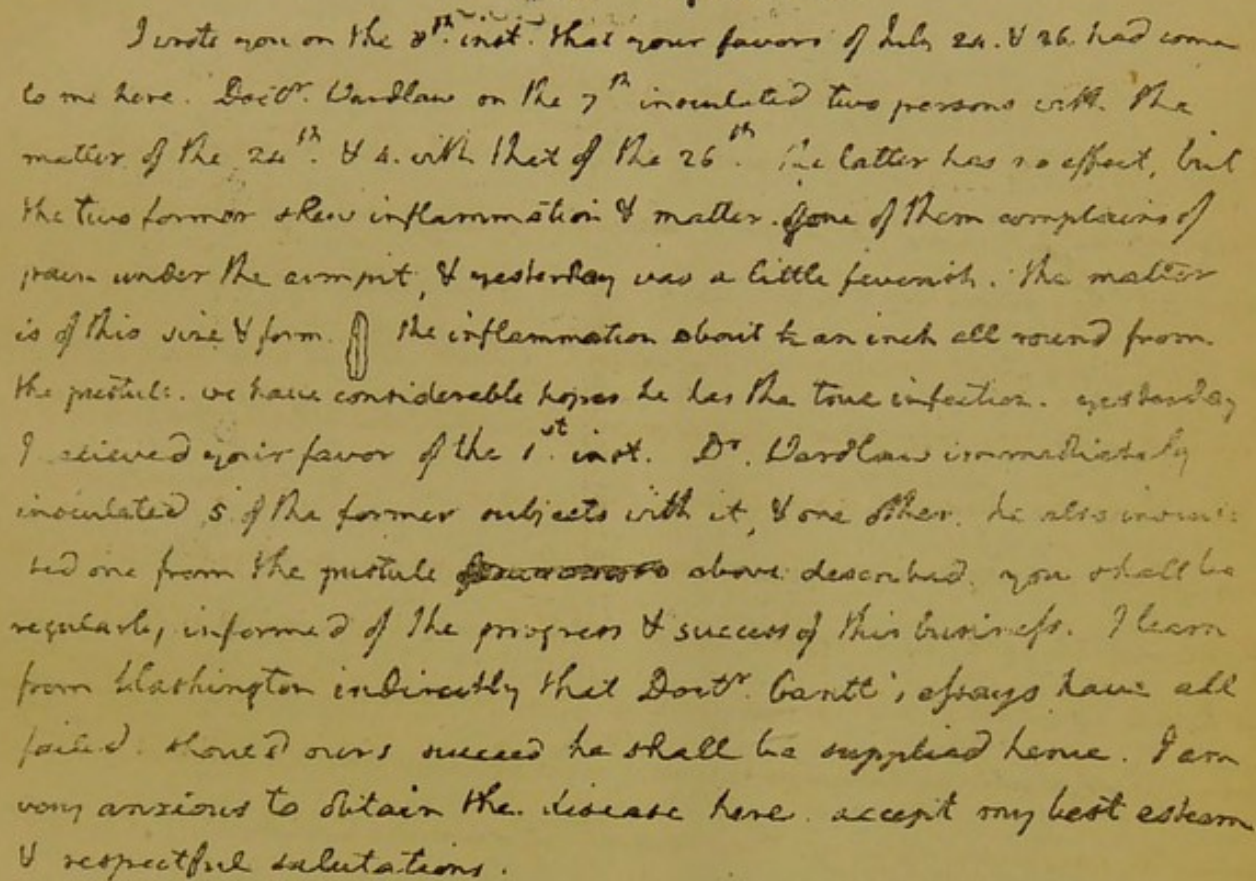 I wrote you on the 8th. inst. that your favors of July 24. & 26. had come
to me here. Doctr. Wardlaw on the 7th inoculated two persons with the
matter of the 24th. & 4. with that of the 26th. the latter has no effect, but
the two former shew inflammation & matter. one of them complains of
pain under the armpit, & yesterday was a little feverish. the matter
is of this size & form. the inflammation about ½ an inch all round from
the pustule. we have considerable hopes he has the true infection. yesterday
I recieved your favor of the 1st. inst. Dr. Wardlaw immediately
inoculated 5 of the former subjects with it, & one other. he also inocula
ted one from the pustule above described. you shall be
regularly informed of the progress & success of this business. I learn
from Washington indirectly that Doctr. Gantt's essays have all
failed. should ours succeed he shall be supplied hence. I am
very anxious to obtain the disease here. accept my best esteem
& respectful salutations.